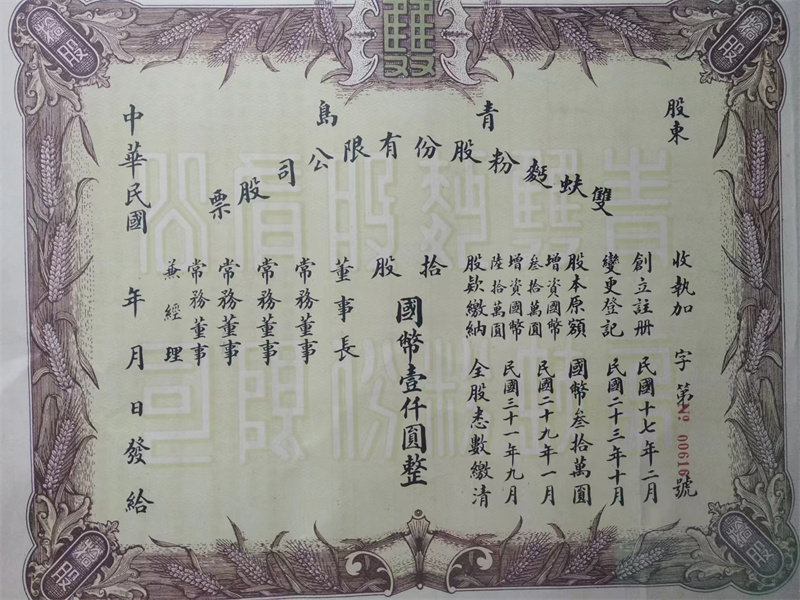 雙
青島
雙蚨麪粉股份有限公司股票
股東 收執加 字第 號
№ 00616
創立註册 民國十七年二月
變更登記 民國二十三年十月
股本原額 國幣叁拾萬圓
增資國幣叁拾萬圓 民國二十九年一月
增資國幣陸拾萬圓 民國三十一年九月
股款繳納 全股悉數繳清
拾股
國幣壹仟圓整
董事長
常務董事
常務董事
常務董事
常務董事
兼經理
中華民國 年 月 日發給